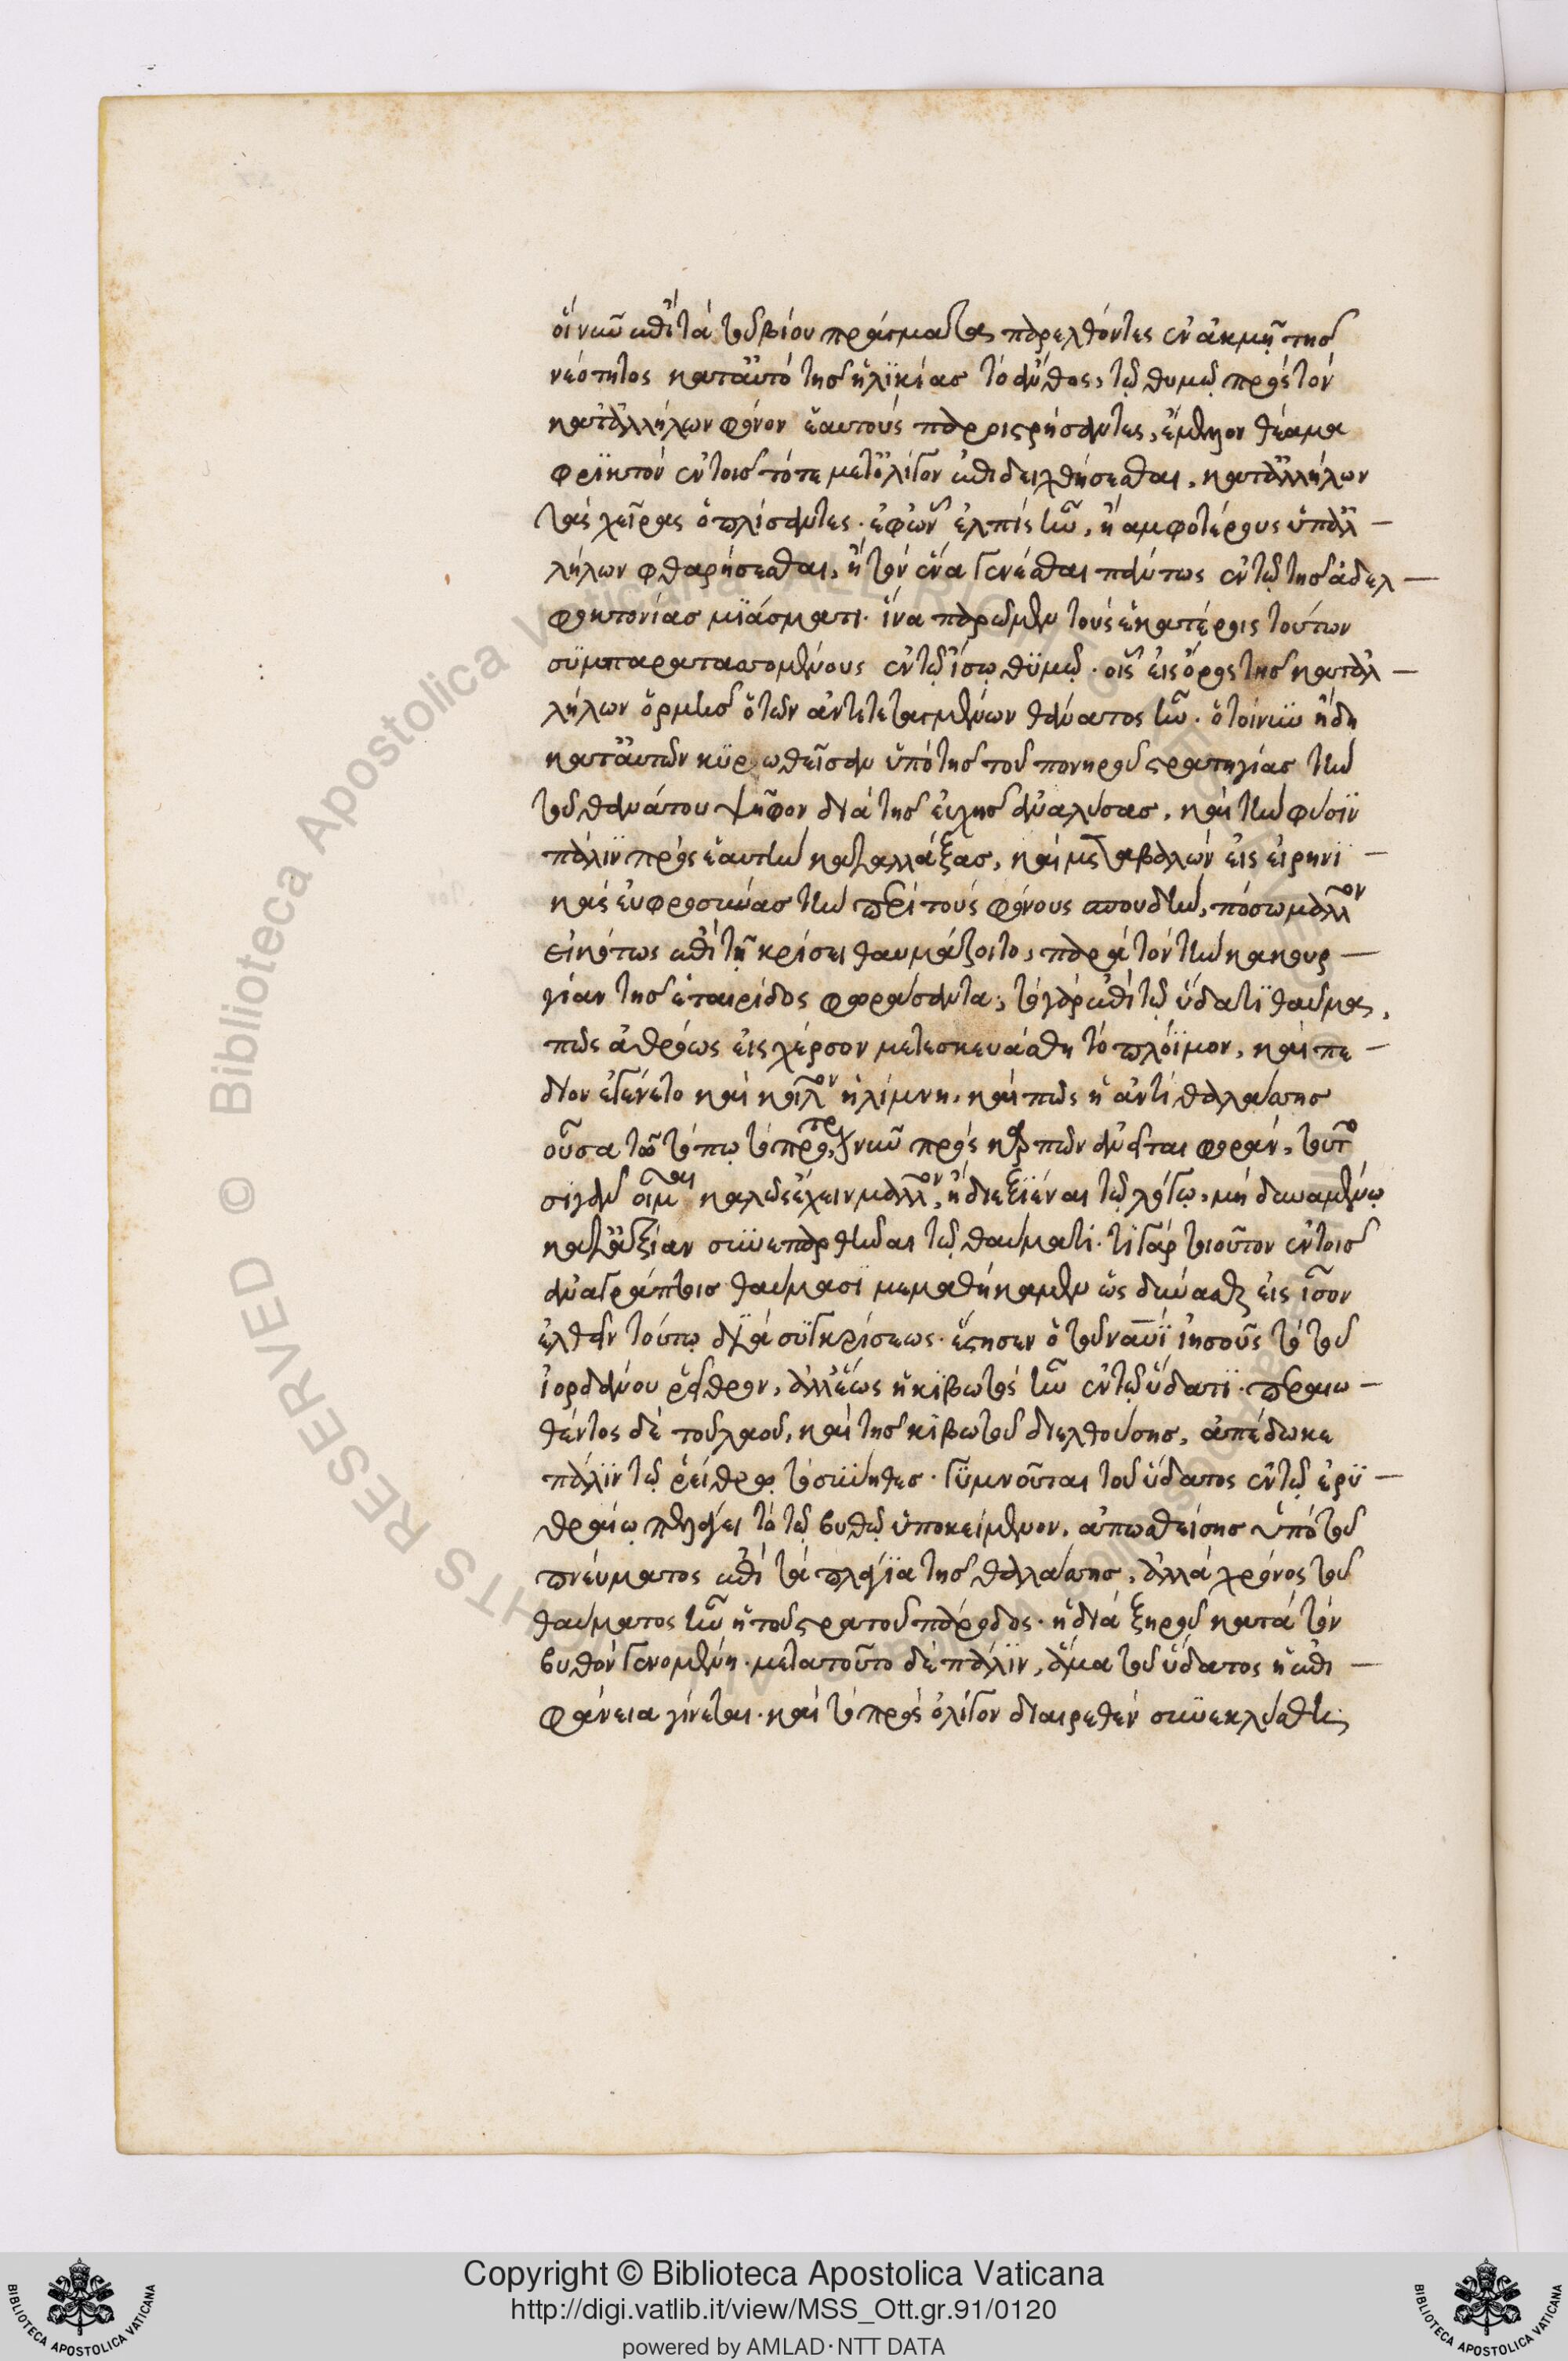 οἱ νῦν ἐπὶ τὰ τοῦ βίου πράγματα, παρελθόντες ἐν ἀκμῇ τῆς
νεότητος κατ᾽ αὐτὸ τῆς ἡλϊκίας τὸ ἄνθος, τῷ θυμῷ πρὸς τὸν
κατ᾽ ἀλλήλων φόνον ἑαυτοὺς παραστήσαντες, ἔμελλον θέαμα
φρϊκτὸν ἐν τοῖς τότε μετ᾽ ὀλίγον ἐπιδειχθήσεσθαι, κατ᾽ ἀλλήλων
τὰς χεῖρας ὁπλίσαντες. ἐφ᾽ ὧν ἐλπὶς ἦν, ἢ ἀμφοτέρους ὑπ᾽ ἀλ
λήλων φθαρήσεσθαι, ἢ τὸν ἕνα γενέσθαι πάντως ἐν τῷ τῆς ἀδελ
φοκτονίας μϊάσματι. ἵνα παρῶμεν τοὺς ἑκατέροις τούτων
σϋμπαρατασσομένους ἐν τῷ ἴσῳ θϋμῷ. οἷς εἷς ὅρος τῆς κατ᾽ ἀλ
λήλων ὁρμῆς ὁ τῶν ἀντιτεταγμένων θάνατος ἦν. ὁ τοίνϋν ἤδη
κατ᾽ αὐτῶν κϋρωθεῖσαν ὑπὸ τῆς τοῦ πονηροῦ στρατηγίας τὴν
τοῦ θανάτου ψῆφον διὰ τῆς εὐχῆς ἀναλύσας, καὶ τὴν φύσϊν
πάλϊν πρὸς ἑαυτὴν καταλλάξας, καὶ μεταβαλὼν εἰς εἰρηνϊ
κὰς εὐφροσύνας τὴν περὶ τοὺς φόνους σπουδήν, πόσῳ μᾶλλον
εἰκότως ἐπὶ τῇ κρίσει θαυμάζοιτο, παρὰ τὸν τὴν κακουρ
γίαν τῆς ἑταιρίδος φωράσαντα, τὸ γὰρ ἐπὶ τῷ ὕδατϊ θαῦμα,
πῶς ἀθρόως εἰς χέρσον μετεσκευάσθη τὸ πλόϊμον, καὶ πε
δίον ἐγένετο καὶ κοῖλον ἡ λίμνη, καὶ πῶς ἡ ἀντὶ θαλάσσης
οὖσα τῷ τόπῳ τὸ πρότερον, νῦν πρὸς καρπῶν ἀνεῖται φοράν, τοῦτο
σϊγᾶν οἶμαι καλῶς ἔχειν μᾶλλον, ἢ διεξϊέναι τῷ λόγῳ, μὴ δυναμένῳ
κατ᾽ ἀξίαν σϋνεπαρθῆναι τῷ θαύματι. τί γὰρ τοιοῦτον ἐν τοῖς
ἀναγράπτοις θαύμασϊ μεμαθήκαμεν ὡς δύνασθαι εἰς ἴσον
ἐλθεῖν τούτῳ δϊὰ σϋγκρίσεως. ἔστησεν ὁ τοῦ ναυῒ ἰησοῦς τὸ τοῦ
ἰορδάνου ῥεῖθρον, ἀλλ᾽ ἕως ἡ κϊβωτὸς ἦν ἐν τῷ ὕδατϊ. περαιω
θέντος δὲ τοῦ λαοῦ, καὶ τῆς κϊβωτοῦ διελθούσης, ἀπέδωκε
πάλϊν τῷ ῥείθρῳ τὸ σϋνήθες. γϋμνοῦται τοῦ ὕδατος ἐν τῷ ἐρϋ
θραίῳ πελάγει τὸ τῷ βυθῷ ὑποκείμενον, ἀπωσθείσης ὑπὸ τοῦ
πνεύματος ἐπὶ τὰ πλάγϊα τῆς θαλάσσης, ἀλλὰ χρόνος τοῦ
θαύματος ἦν ἡ τοῦ στρατοῦ πάροδος. ἡ διὰ ξηροῦ κατὰ τὸν
βυθὸν γενομένη. μετὰ τοῦτο δὲ πάλϊν, ἅμα τοῦ ὕδατος ἡ ἐπι
φάνεια γίνεται. καὶ τὸ πρὸς ὀλίγον διαιρεθὲν σϋνεκλύσθη,
Copyright © Biblioteca Apostolica Vaticana
http://digi.vatlib.it/view/MSS_Ott.gr.91/0120
powered by AMLAD·NTT DATA